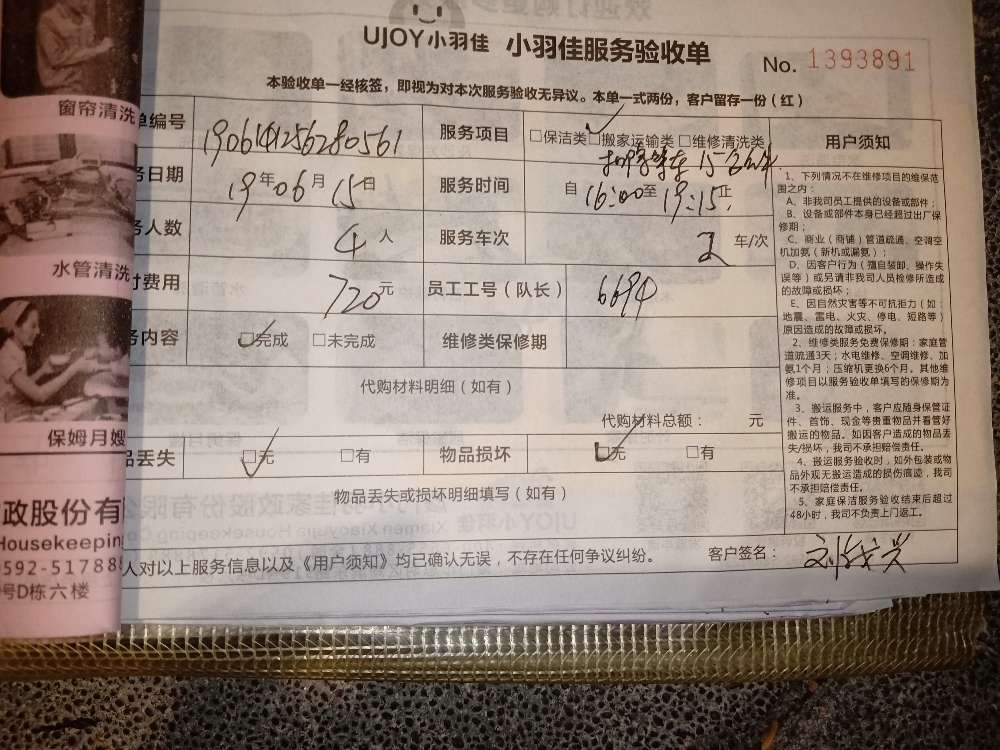 UJOY小羽佳 小羽佳服务验收单 No. 1393891
本验收单一经核签，即视为对本次服务验收无异议。本单一式两份，客户留存一份（红）
单编号 1906141256280561 服务项目 □保洁类 □搬家运输类 □维修清洗类 用户须知
务日期 19年06月15日 服务时间 15分钟
自16:00至19:15止
务人数 4人 服务车次 2 车/次
付费用 720元 员工工号（队长） 6694
务内容 □完成 □未完成 维修类保修期
代购材料明细（如有）
代购材料总额： 元
品丢失 □无 □有 物品损坏 □无 □有
物品丢失或损坏明细填写（如有）
人对以上服务信息以及《用户须知》均已确认无误，不存在任何争议纠纷。 客户签名：
1、下列情况不在维修项目的维保范
围之内：
A、非我司员工提供的设备或部件；
B、设备或部件本身已经超过出厂保
修期；
C、商业（商铺）管道疏通、空调空
机加氨（新机或漏氨）；
D、因客户行为（擅自装卸、操作失
误等）或另请非我司人员检修所造成
的故障或损坏；
E、因自然灾害等不可抗拒力（如：
地震、雷电、火灾、停电、短路等）
原因造成的故障或损坏。
2、维修类服务免费保修期：家庭管
道疏通3天；水电维修、空调维修、加
氨1个月；压缩机更换6个月。其他维
修项目以服务验收单填写的保修期为
准。
3、搬运服务中，客户应随身保管证
件、首饰、现金等贵重物品并看管好
搬运的物品。如因客户造成的物品丢
失/损坏，我司不承担赔偿责任。
4、搬运服务验收时，如外包装或物
品外观无搬运造成的损伤痕迹，我司
不承担赔偿责任。
5、家庭保洁服务验收结束后超过
48小时，我司不负责上门返工。
窗帘清洗
水管清洗
保姆月嫂
政股份有
Housekeeping
0592-51788
号D栋六楼